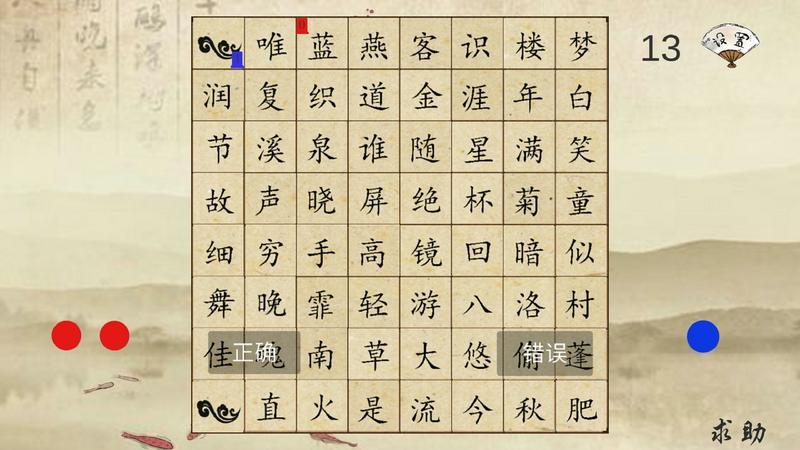 唯蓝燕客识楼梦
润复织道金涯年白
节溪泉谁随星满笑
故声晓屏绝杯菊童
细穷手高镜回暗似
舞晚霏轻游八洛村
佳南草大悠蓬
直火是流今秋肥
0
13
设置
正确
错误
求助